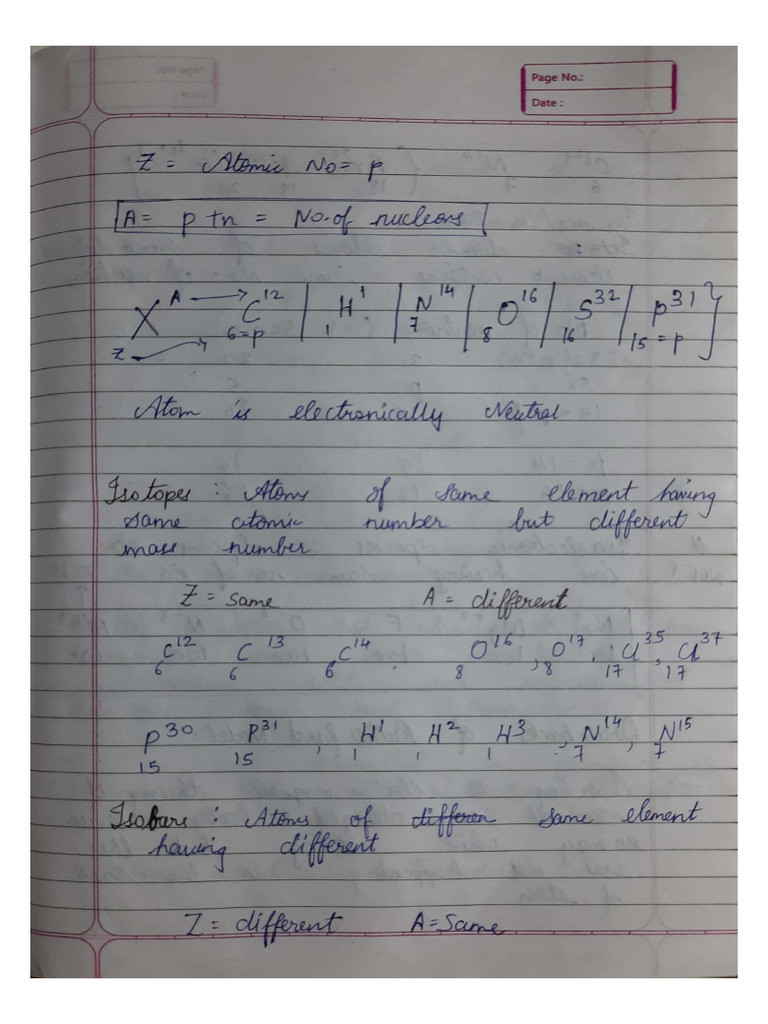 Page No.:
Date :
Z = Atomic No = p
A = p + n = No. of nucleons
X A → C 12 | H 1 | N 14 | O 16 | S 32 | P 31 }
Z → 6 = p 1 7 8 16 15 = p
Atom is electronically Neutral
Isotopes : Atoms of same element having
same atomic number but different
mass number
Z = same A = different
6 C 12 6 C 13 6 C 14 , 8 O 16 , 8 O 17 , 17 Cl 35 , 17 Cl 37
15 P 30 15 P 31 , 1 H 1 1 H 2 1 H 3 , 7 N 14 , 7 N 15
Isobars : Atoms of differen same element
having different
Z = different A = Same